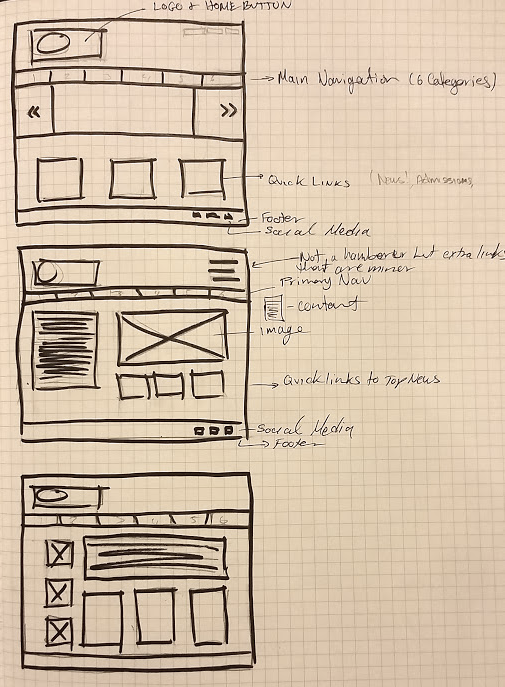 LOGO & HOME BUTTON
Main Navigation (6 Categories)
1 2 3 4 5 6
«
»
Quick Links (News, Admissions,
Footer
Social Media
Not a hamburer but extra links
that are miner
Primary Nav
- content
image
Quicklinks to Top News
Social Media
Footer
2 3 4 5 6